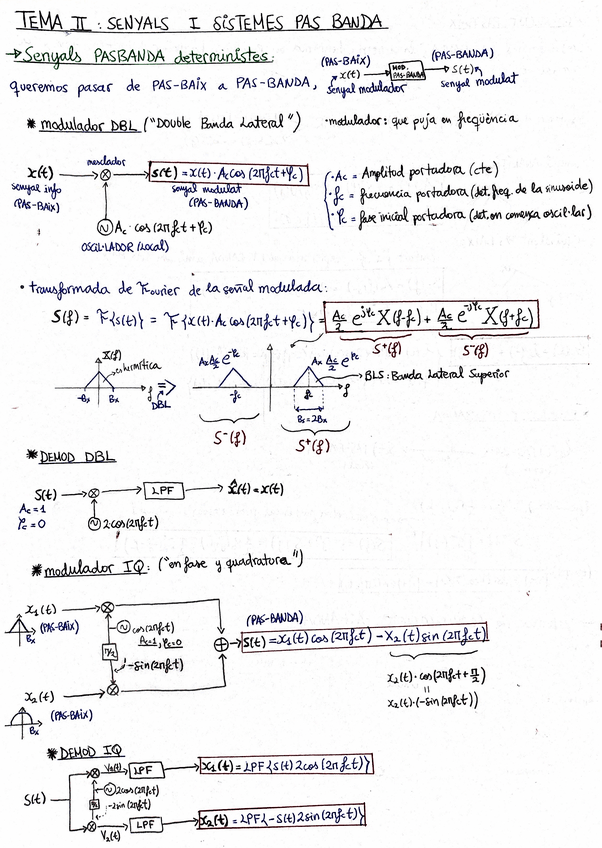 TEMA II : SENYALS I SISTEMES PAS BANDA
→ Senyals PASBANDA deterministes:
(PAS-BAIX) x(t) senyal modulador → MOD. PAS-BANDA → (PAS-BANDA) s(t) senyal modulat
queremos pasar de PAS-BAIX a PAS-BANDA,
* modulador DBL ("Double Banda Lateral") · modulador: que puja en freqüència
x(t) senyal info (PAS-BAIX)
mesclador
s(t) = x(t)·Ac cos(2πfct+φc)
senyal modulat (PAS-BANDA)
Ac·cos(2πfct+φc)
OSCIL·LADOR (local)
· Ac = Amplitud portadora (cte)
· fc = frecuencia portadora (det. freq. de la sinusoide)
· φc = fase inicial portadora (det. on comença oscil·lar)
• transformada de Fourier de la señal modulada:
S(f) = F{s(t)} = F{x(t)·Ac cos(2πfct+φc)} = Ac/2 e^jφc X(f-fc) + Ac/2 e^-jφc X(f+fc)
S⁺(f) S⁻(f)
X(f) hermítica
-Bx Bx f => DBL
Ax Ac/2 e^-φc Ax Ac/2 e^φc
-fc fc f
BLS: Banda Lateral Superior
Bs=2Bx
S⁻(f) S⁺(f)
* DEMOD DBL
S(t) → ⊗ → LPF → x̂(t) = x(t)
Ac=1
φc=0
2cos(2πfct)
* modulador IQ: ("en fase y quadratura")
x1(t) (PAS-BAIX)
Bx
cos(2πfct)
Ac=1, φc=0
π/2
-sin(2πfct)
(PAS-BANDA)
s(t) = x1(t) cos(2πfct) - x2(t) sin(2πfct)
x2(t)·cos(2πfct+π/2)
=
x2(t)·(-sin(2πfct))
x2(t) (PAS-BAIX)
Bx
* DEMOD IQ
V1(t) LPF → x1(t) = LPF{s(t) 2cos(2πfct)}
S(t)
2cos(2πfct)
π/2
-2sin(2πfct)
V2(t) LPF → x2(t) = LPF{-s(t) 2sin(2πfct)}